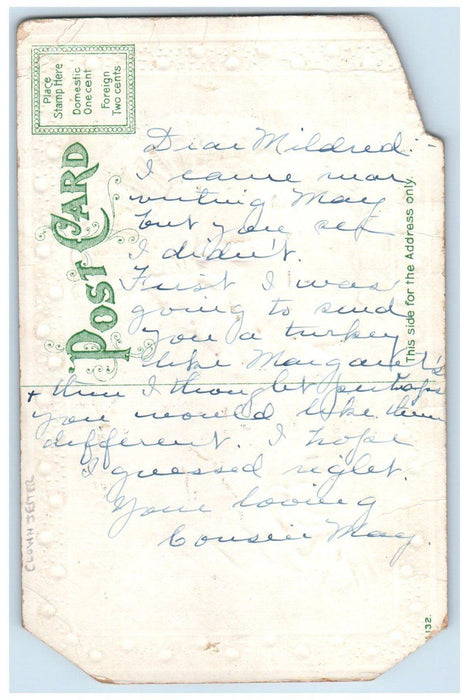 Place
Stamp Here
Domestic
One cent
Foreign
Two cents
POST CARD
This side for the Address only.
Dear Mildred:-
I came near
writing May
but you see
I didn't.
First I was
going to send
you a turkey
like Margaret's
+ then I thought perhaps
you would like them
different. I hope
I guessed right.
Your loving
Cousin May.
CLOWN JESTER
132.